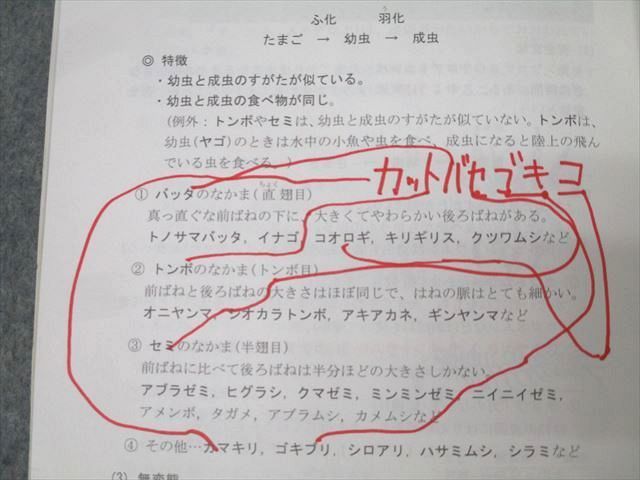 ふ化 羽化
う
たまご → 幼虫 → 成虫
◎ 特徴
・幼虫と成虫のすがたが似ている。
・幼虫と成虫の食べ物が同じ。
(例外:トンボやセミは、幼虫と成虫のすがたが似ていない。トンボは、
幼虫(ヤゴ)のときは水中の小魚や虫を食べ、成虫になると陸上の飛ん
でいる虫を食べる。)
カットバセゴキコ
ちょく
① バッタのなかま(直翅目)
真っ直ぐな前ばねの下に、大きくてやわらかい後ろばねがある。
トノサマバッタ, イナゴ, コオロギ, キリギリス, クツワムシなど
② トンボのなかま(トンボ目)
前ばねと後ろばねの大きさはほぼ同じで、はねの脈はとても細かい。
オニヤンマ, シオカラトンボ, アキアカネ, ギンヤンマなど
③ セミのなかま(半翅目)
前ばねに比べて後ろばねは半分ほどの大きさしかない。
アブラゼミ, ヒグラシ, クマゼミ, ミンミンゼミ, ニイニイゼミ,
アメンボ, タガメ, アブラムシ, カメムシなど
④ その他…カマキリ, ゴキブリ, シロアリ, ハサミムシ, シラミなど
(3) 無変態